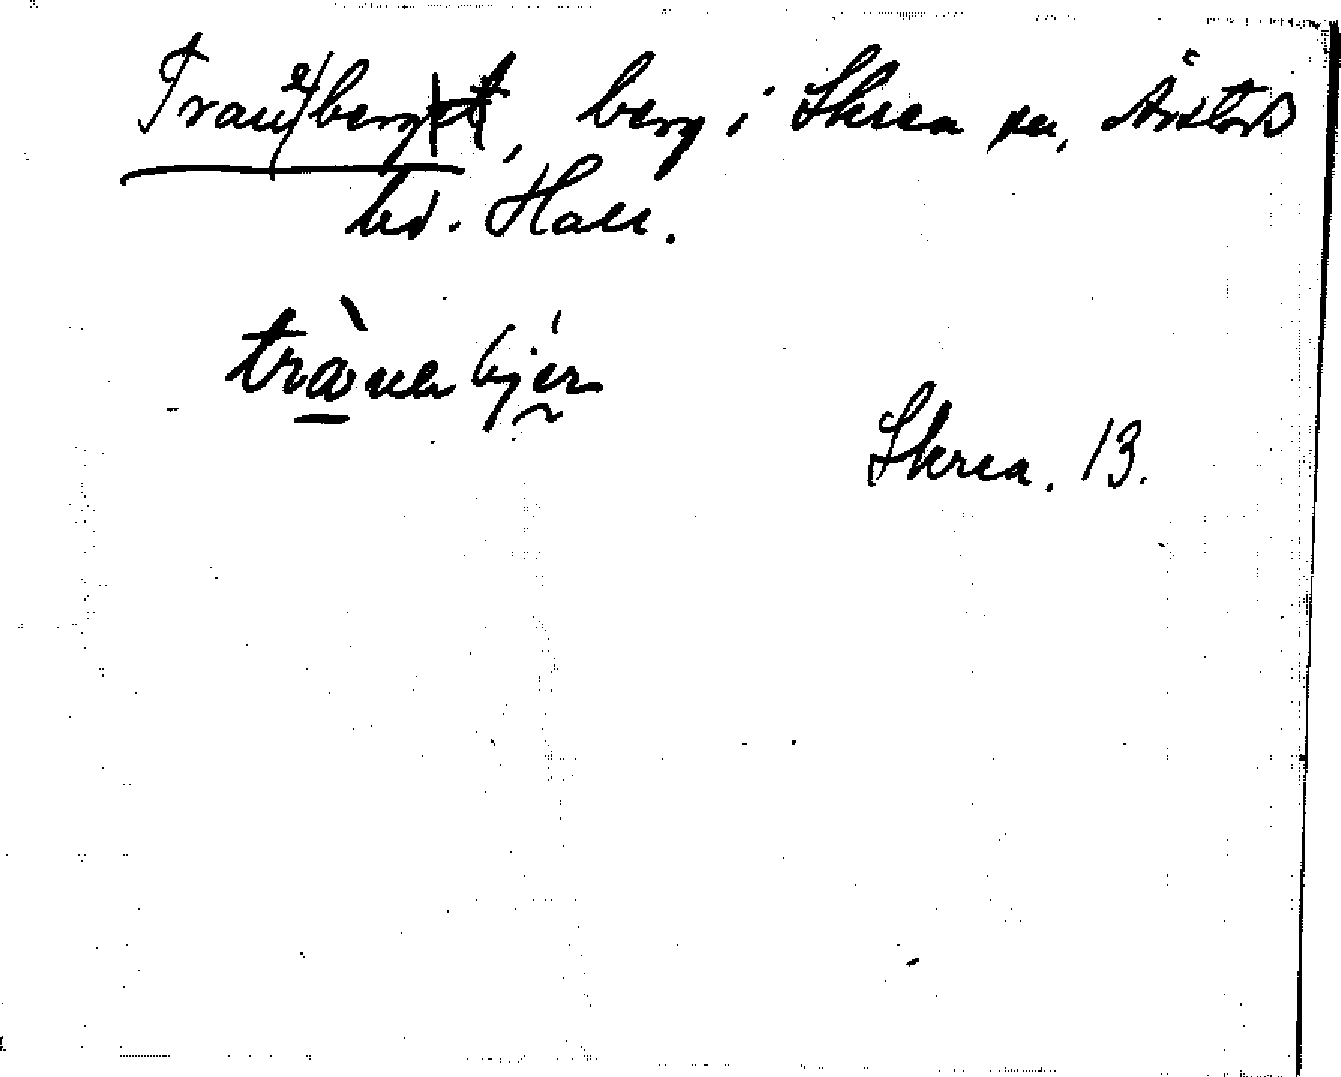 Traneberg, berg i Skrea sn, Årstads
hd. Hall.
trànebjér
Skrea. 13.